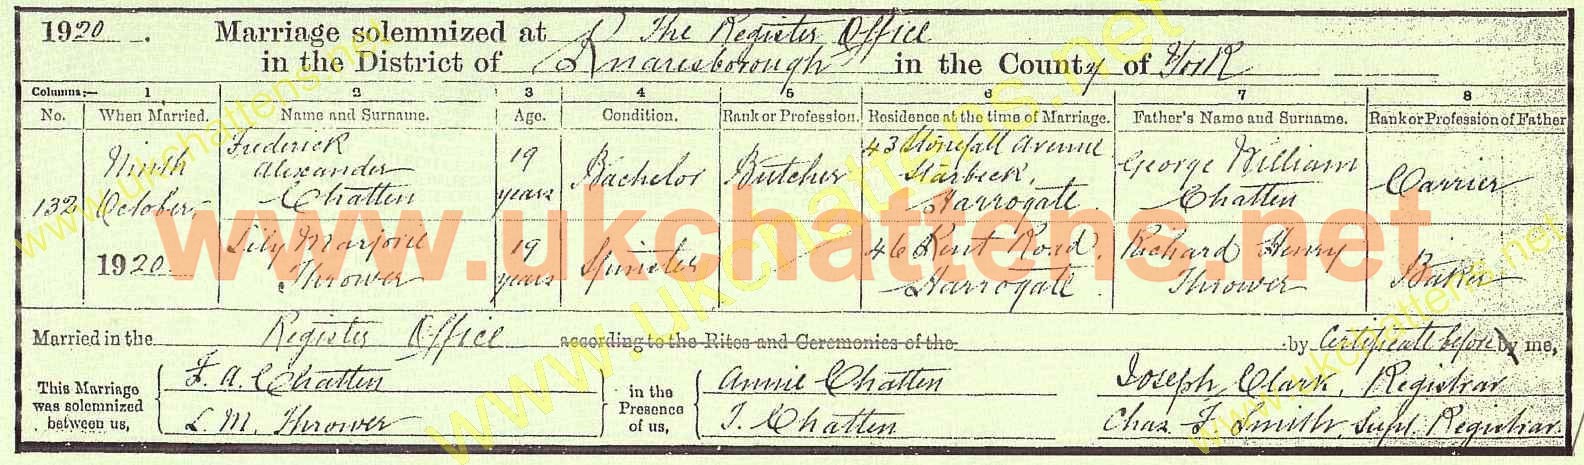 1920. Marriage solemnized at The Register Office
in the District of Knaresborough in the County of York
Columns:— 1 2 3 4 5 6 7 8
No. When Married. Name and Surname. Age. Condition. Rank or Profession. Residence at the time of Marriage. Father's Name and Surname. Rank or Profession of Father
132 Ninth October, 1920
Frederick
Alexander
Chatten
19
years
Bachelor
Butcher
43 Stonefall Avenue
Starbeck,
Harrogate
George William
Chatten
Carrier
Lily Marjorie
Thrower
19
years
Spinster
46 Kent Road,
Harrogate
Richard Henry
Thrower
Baker
Married in the Register Office according to the Rites and Ceremonies of the by Certificate before by me,
This Marriage
was solemnized
between us,
F. A. Chatten
L. M. Thrower
in the
Presence
of us,
Annie Chatten
T. Chatten
Joseph Clark, Registrar
Chas. F. Smith, Supt. Registrar
www.ukchattens.net
www.ukchattens.net
www.ukchattens.net
www.ukchattens.net